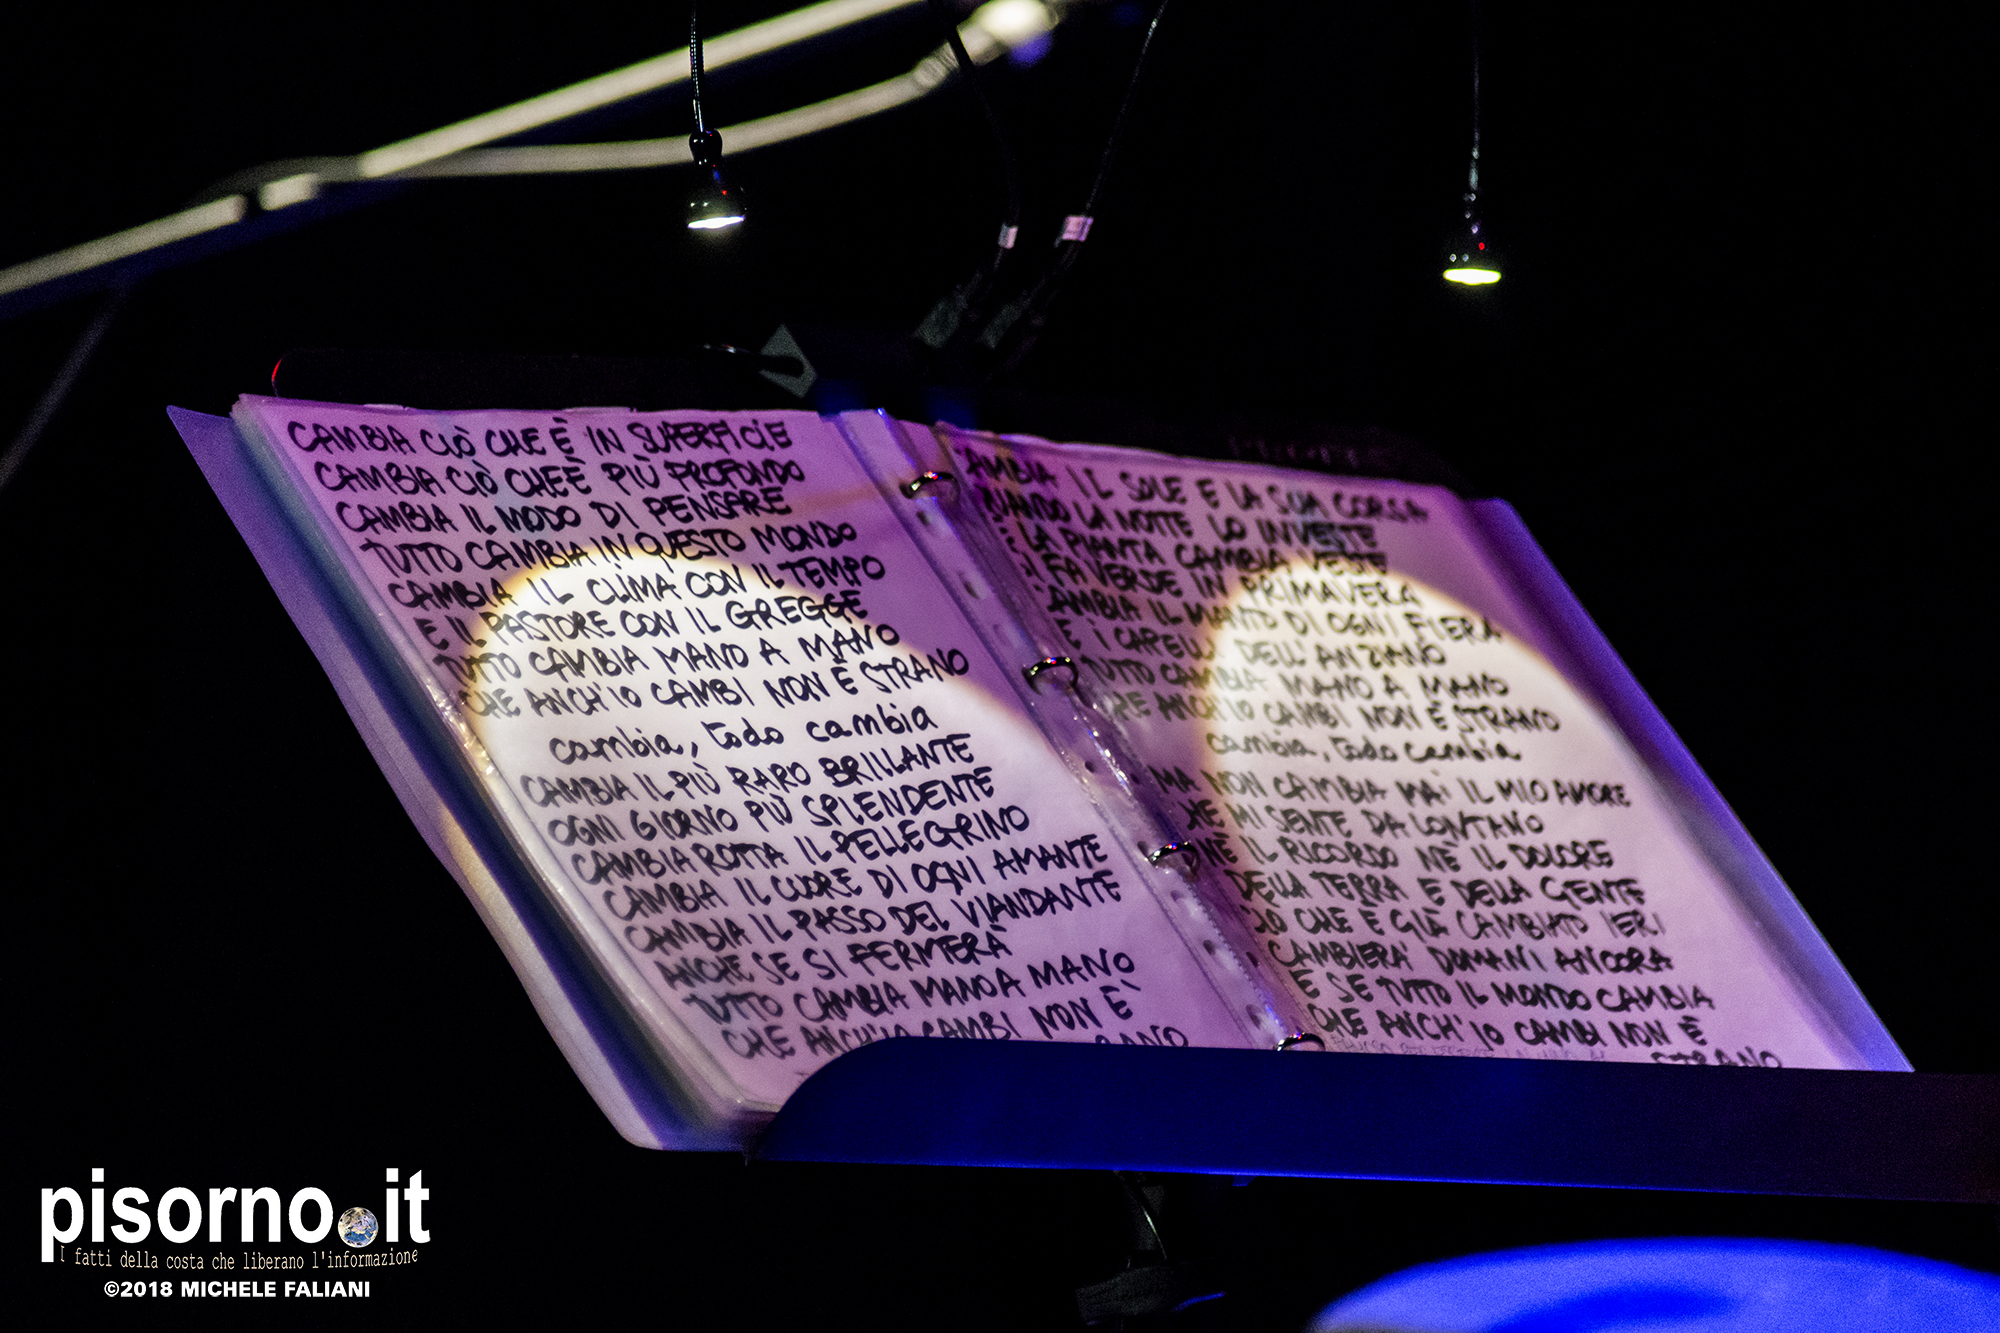 CAMBIA CIÒ CHE È IN SUPERFICIE
CAMBIA CIÒ CHE È PIÙ PROFONDO
CAMBIA IL MODO DI PENSARE
TUTTO CAMBIA IN QUESTO MONDO
CAMBIA IL CLIMA CON IL TEMPO
E IL PASTORE CON IL GREGGE
TUTTO CAMBIA MANO A MANO
CHE ANCH'IO CAMBI NON È STRANO
cambia, todo cambia
CAMBIA IL PIÙ RARO BRILLANTE
OGNI GIORNO PIÙ SPLENDENTE
CAMBIA ROTTA IL PELLEGRINO
CAMBIA IL CUORE DI OGNI AMANTE
CAMBIA IL PASSO DEL VIANDANTE
ANCHE SE SI FERMERÀ
TUTTO CAMBIA MANO A MANO
CHE ANCH'IO CAMBI NON È
RANO
AMBIA IL SOLE E LA SUA CORSA
UANDO LA NOTTE LO INVESTE
E LA PIANTA CAMBIA VESTE
SI FA VERDE IN PRIMAVERA
AMBIA IL MANTO DI OGNI FIERA
E I CAPELLI DELL'ANZIANO
TUTTO CAMBIA MANO A MANO
CHE ANCH'IO CAMBI NON È STRANO
cambia, todo cambia
MA NON CAMBIA MAI IL MIO AMORE
HE MI SENTE DA LONTANO
NÈ IL RICORDO NÈ IL DOLORE
DELLA TERRA E DELLA GENTE
CIÒ CHE È GIÀ CAMBIATO IERI
CAMBIERA' DOMANI ANCORA
E SE TUTTO IL MONDO CAMBIA
CHE ANCH'IO CAMBI NON È
STRANO
pisorno.it
I fatti della costa che liberano l'informazione
©2018 MICHELE FALIANI